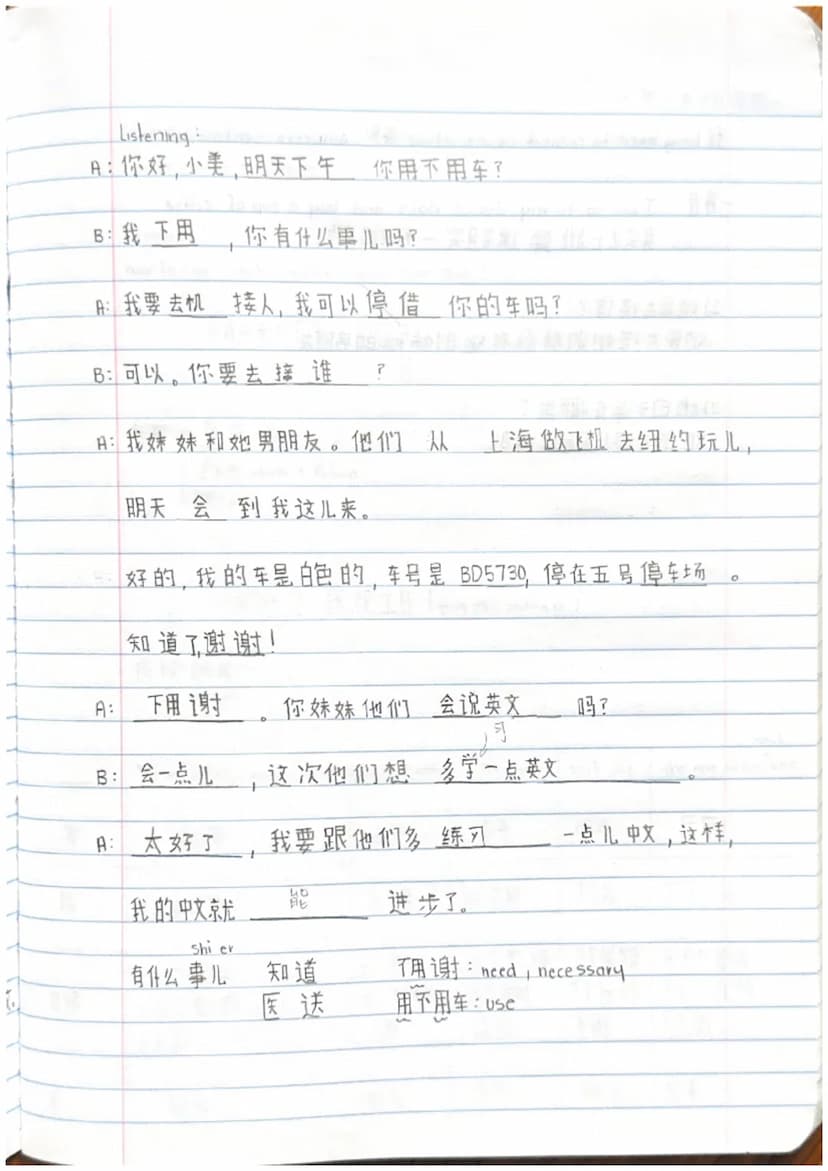 Listening:
A: 你好, 小美, 明天下午 你用不用车?
B: 我 下用 , 你有什么事儿吗?
A: 我要去机 接人, 我可以停借 你的车吗?
B: 可以。你要去接谁 ?
A: 我妹妹和她男朋友。他们 从 上海做飞机 去纽约玩儿,
明天 会 到我这儿来。
好的, 我的车是白色的, 车号是 BD5730, 停在五号停车场 。
知道了,谢谢!
A: 下用谢 。你妹妹他们 会说英文 吗?
习
B: 会一点儿 , 这次他们想 多学一点英文 。
A: 太好了 , 我要跟他们多 练习 一点儿中文, 这样,
我的中文就 能 进步了。
shi er
有什么事儿 知道 不用谢: need, necessary
医 送 用不用车: use